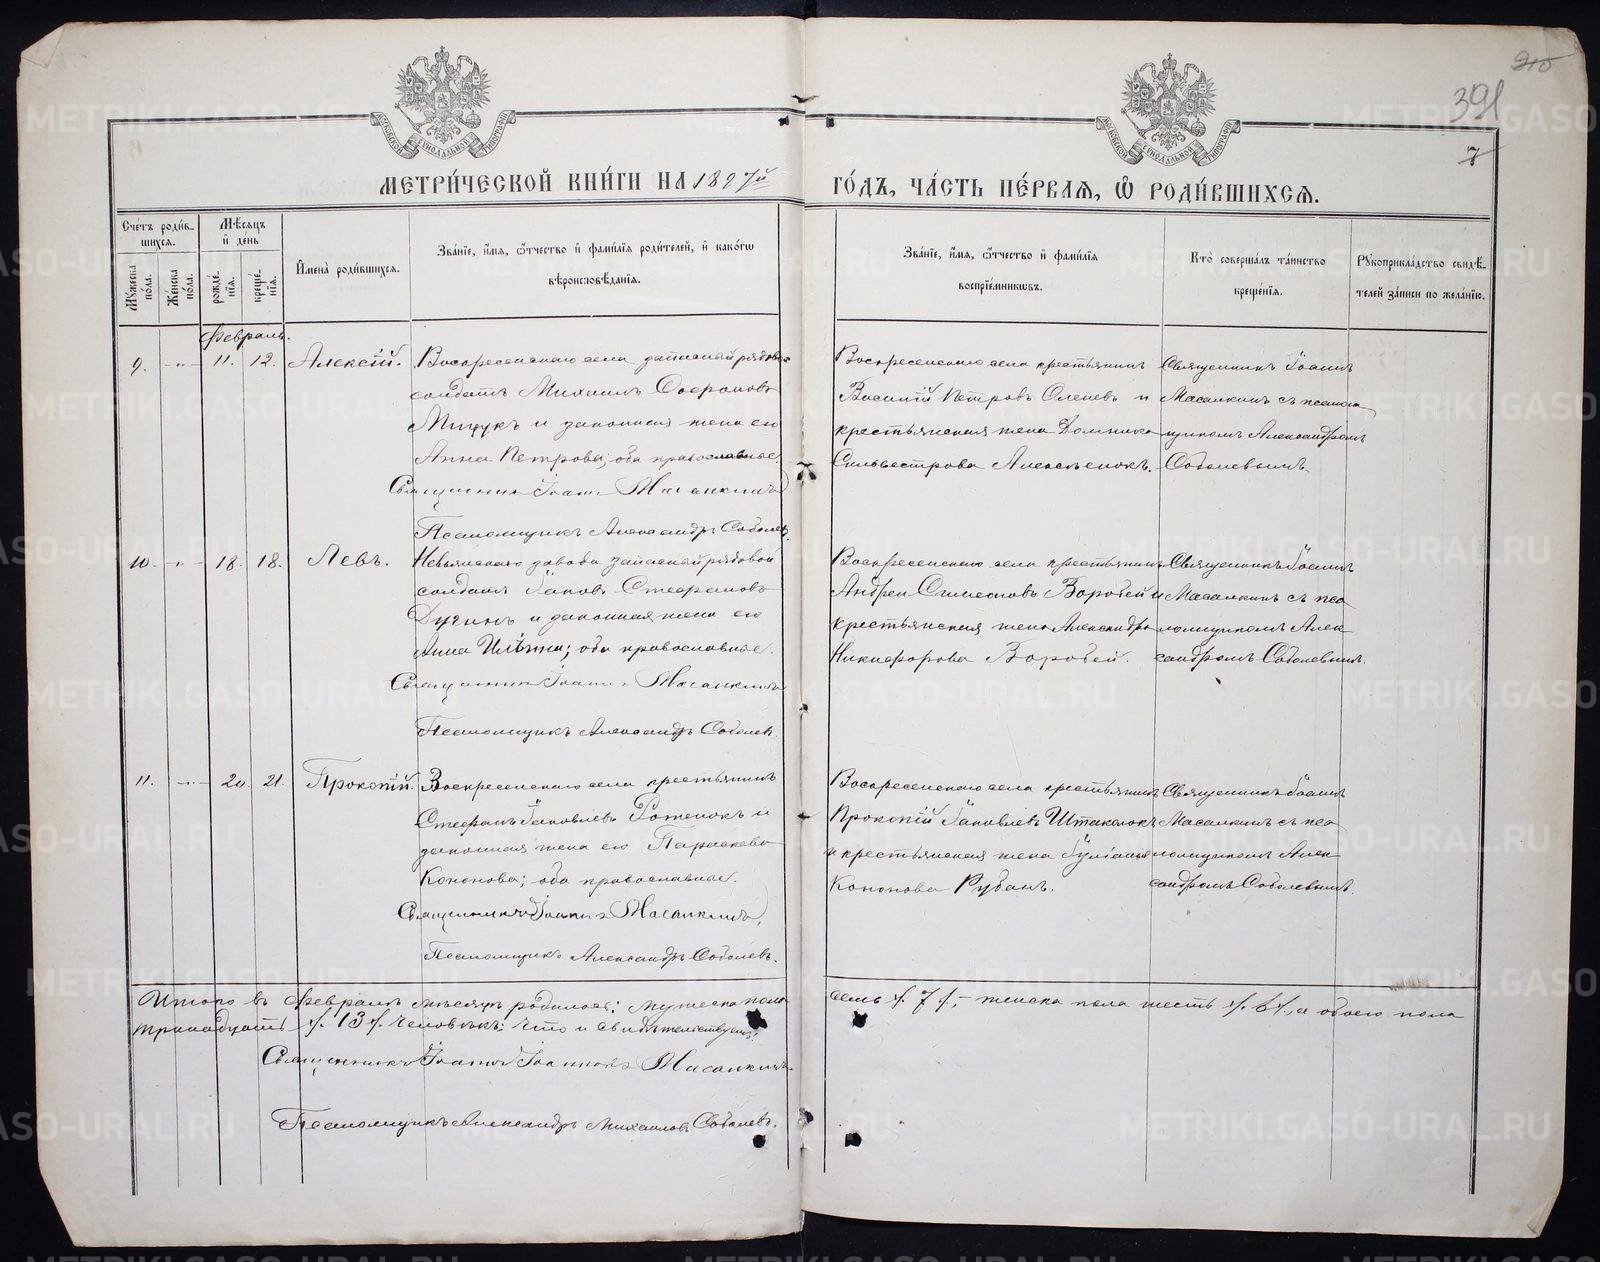 210
391
7
МОСКОВСКОЙ СѴНОДАЛЬНОЙ ТИПОГРАФІИ
МОСКОВСКОЙ СѴНОДАЛЬНОЙ ТИПОГРАФІИ
МЕТРИ́ЧЕСКОЙ КНИ́ГИ НА 1897й ГО́ДЪ, ЧА́СТЬ ПЕ́РВАЯ, Ѽ РОДИ́ВШИХСЯ.
Сче́тъ роди́в-
шихся.
Му́жеска
по́ла.
Же́нска
по́ла.
Мѣ́сяцъ
и҆ де́нь
рожде́-
нїя.
креще́-
нїя.
И҆мена̀ роди́вшихся.
Зва́нїе, и҆́мя, ѻ҆́тчество и҆ фами́лїя роди́телей, и҆ како́гѡ
вѣроисповѣ́данїя.
Зва́нїе, и҆́мя, ѻ҆́тчество и҆ фами́лїя
воспрїе́мникѡвъ.
Кто̀ соверша́лъ та́инство
креще́нїя.
Рꙋкоприкла́дство свидѣ́-
телей за́писи по жела́нїю.
Февраль.
9. - " - 11. 12. Алексій.
Воскресенскаго села запасный рядовой
солдатъ Михаилъ Софроновъ
Мищукъ и законная жена его
Анна Петрова; оба православные.
Священникъ Іоаннъ Масалкинъ
Псаломщикъ Александръ Соболевъ
Воскресенскаго села крестьянинъ
Василій Петровъ Оленевъ и
крестьянская жена Домника
Сильвестрова
Священникъ Іоаннъ
Масалкинъ съ псалом
щикомъ Александромъ
Соболевымъ.
10. - " - 18. 18. Левъ.
Невьянскаго завода запасный рядовой
солдатъ Іаковъ Стефановъ
Дугинъ и законная жена его
Анна Ильина; оба православные.
Священникъ Іоаннъ Масалкинъ
Псаломщикъ Александръ Соболевъ
Воскресенскаго села крестьянинъ
Андрей Симеоновъ Воробей и
крестьянская жена Александра
Никифорова Воробей.
Священникъ Іоаннъ
Масалкинъ съ пса
ломщикомъ Алек
сандромъ Соболевымъ.
11. - " - 20. 21. Прокопій.
Воскресенскаго села крестьянинъ
Стефанъ Іаковлевъ Ротенокъ и
законная жена его Параскева
Кононова; оба православные.
Священникъ Іоаннъ Масалкинъ,
Псаломщикъ Александръ Соболевъ.
Воскресенскаго села крестьянинъ
Прокопій Іаковлевъ Штаколокъ
и крестьянская жена Іуліанія
Кононова Рубанъ.
Священникъ Іоаннъ
Масалкинъ съ пса
ломщикомъ Алек
сандромъ Соболевымъ.
Итого въ февралѣ мѣсяцѣ родилось: мужеска пола семь /. 7 /. - женска пола шесть /. 6 /., а обоего пола
тринадцать /. 13 /. человѣкъ; что и свидѣтельствуемъ:
Священникъ Іоаннъ Іоанновъ Масалкинъ
Псаломщикъ Александръ Михаиловъ Соболевъ.
METRIKI.GASO-URAL.RU